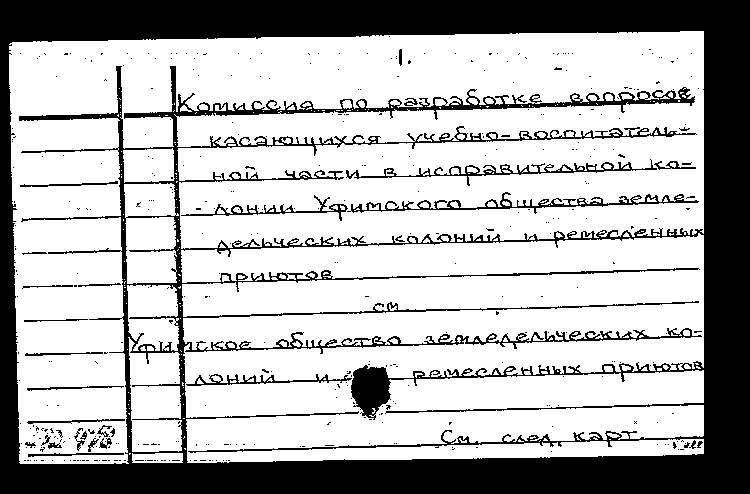 1.
Комиссия по разработке вопросов
касающихся учебно-воспитатель-
ной части в исправительной ко-
лонии Уфимского общества земле-
дельческих колоний и ремесленных
приютов
см.
Уфимское общество земледельческих ко-
лоний и ремесленных приютов
См. след. карт.